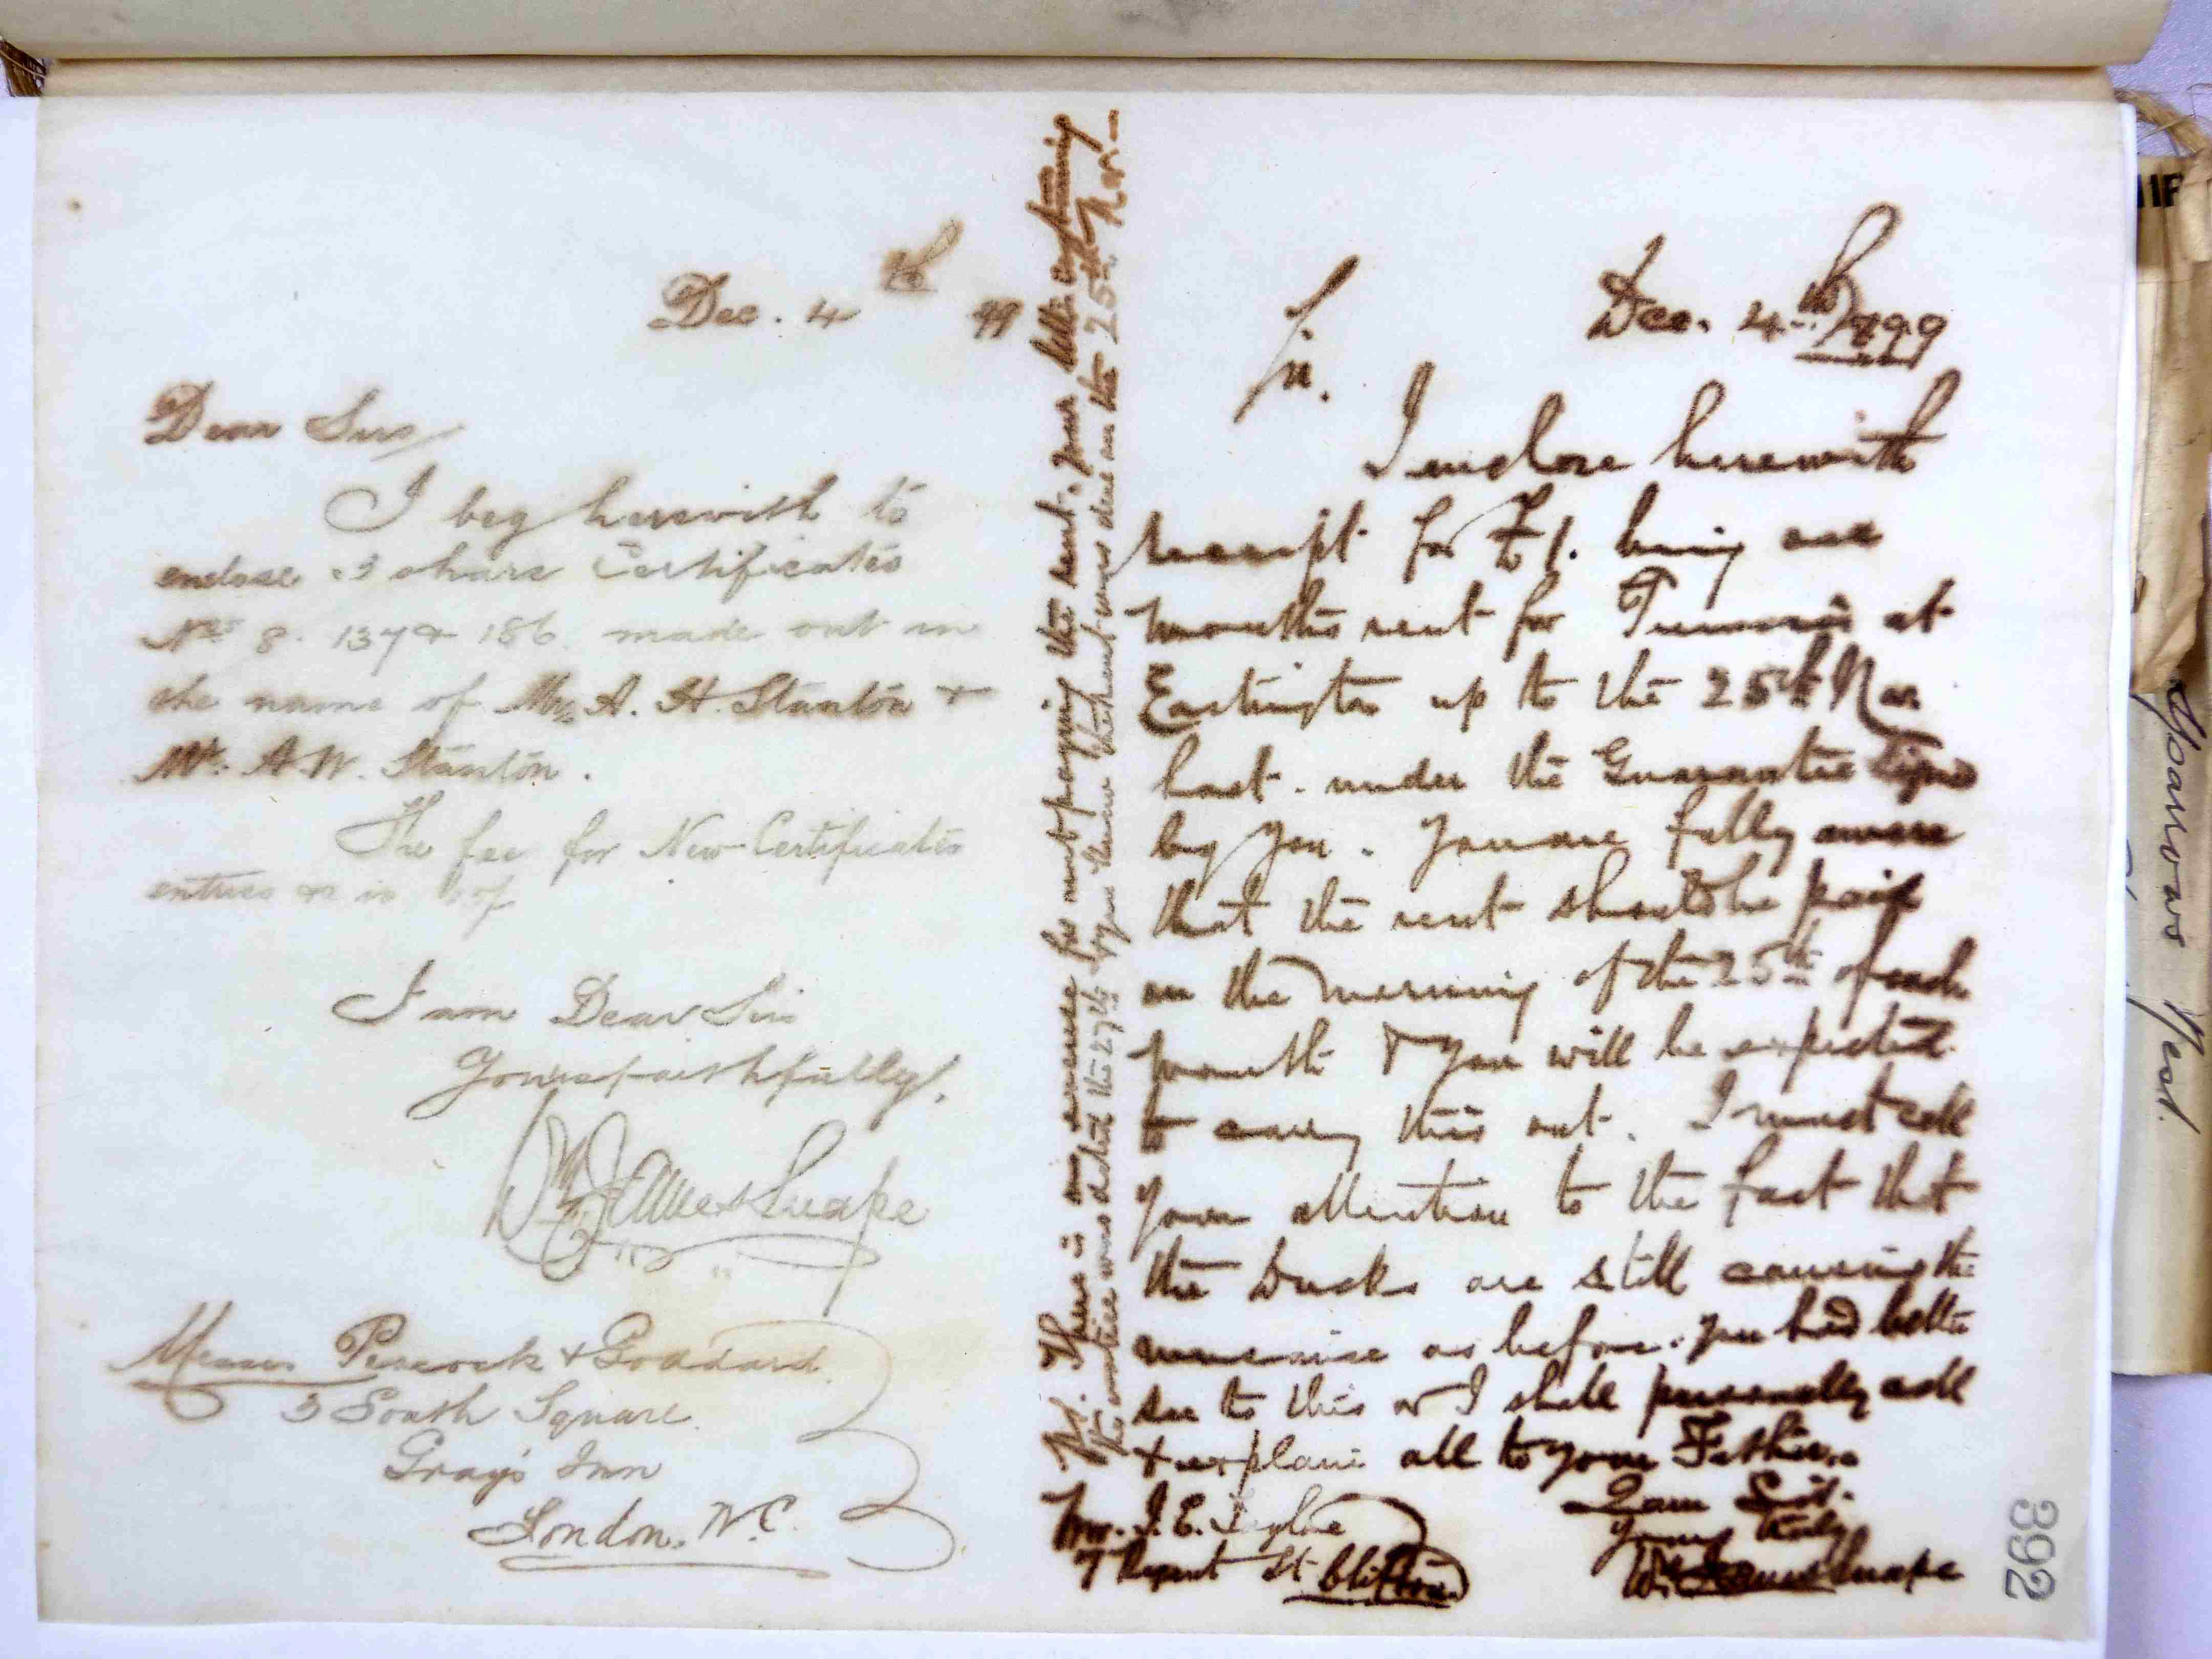 Dec. 4th 99
Dear Sirs
I beg herewith to
enclose 3 share Certificates
Nos 8. 137 & 186 made out in
the name of Mrs A. H. Stanton &
Mr. A. W. Stanton.
The fee for New Certificates
entries &c is
I am Dear Sirs
Yours faithfully,
Wm James Snape
Messrs Peacock & Goddard
3 South Square
Gray's Inn
London. W.C.
Dec. 4th 1899
Sir.
I enclose herewith
receipt for £1. being one
months rent for at
Eastington up to the 25th Nov
last. under the Guarantee signed
by you. You are fully aware
that the rent should be paid
on the morning of the 25th of each
month & you will be expected
to carry this out. I must call
your attention to the fact that
the Ducks are still causing the
nuisance as before. You had better
see to this or I shall personally call
& explain all to your Father.
I am Sir.
Yours truly
Wm James Snape
Mr. J. E.
7 Regent St Clifton
P.S. There is no excuse for not paying this rent. Your letter containing
the notice was dated the 27th & you knew that rent was due on the 25th Nov.
392
Yarrows
West.